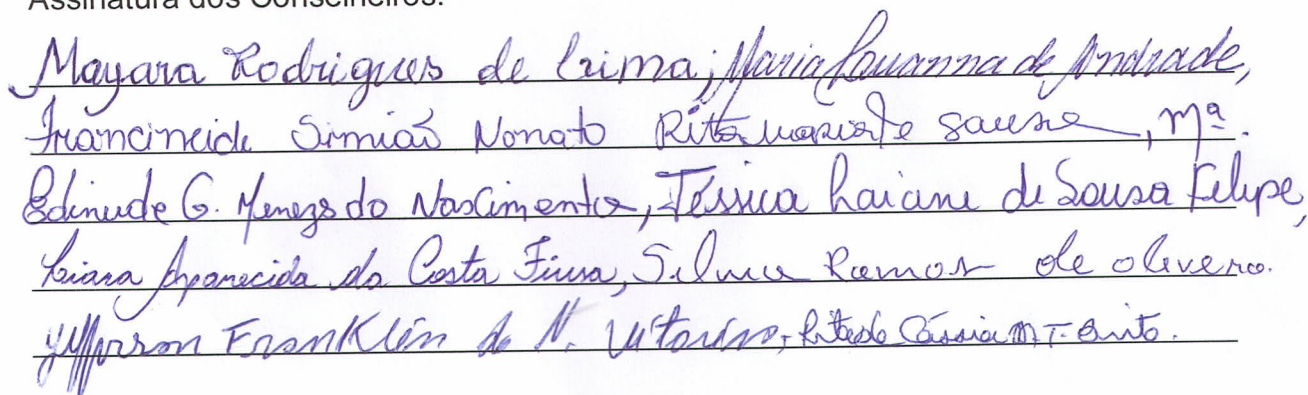 Assinatura dos Conselheiros:
Mayara Rodrigues de Lima; Maria Louanna de Andrade,
Francineide Simiaõ Nonato Rita maria de sousa, Mª.
Edineude G. Menezes do Nascimento, Jéssica Laiane de Sousa Felipe,
Liana Aparecida da Costa Fiusa, Silvia Ramos de oliveira.
Jefferson Franklin do N. Vitorino, Rita de Cássia M. T. Brito.